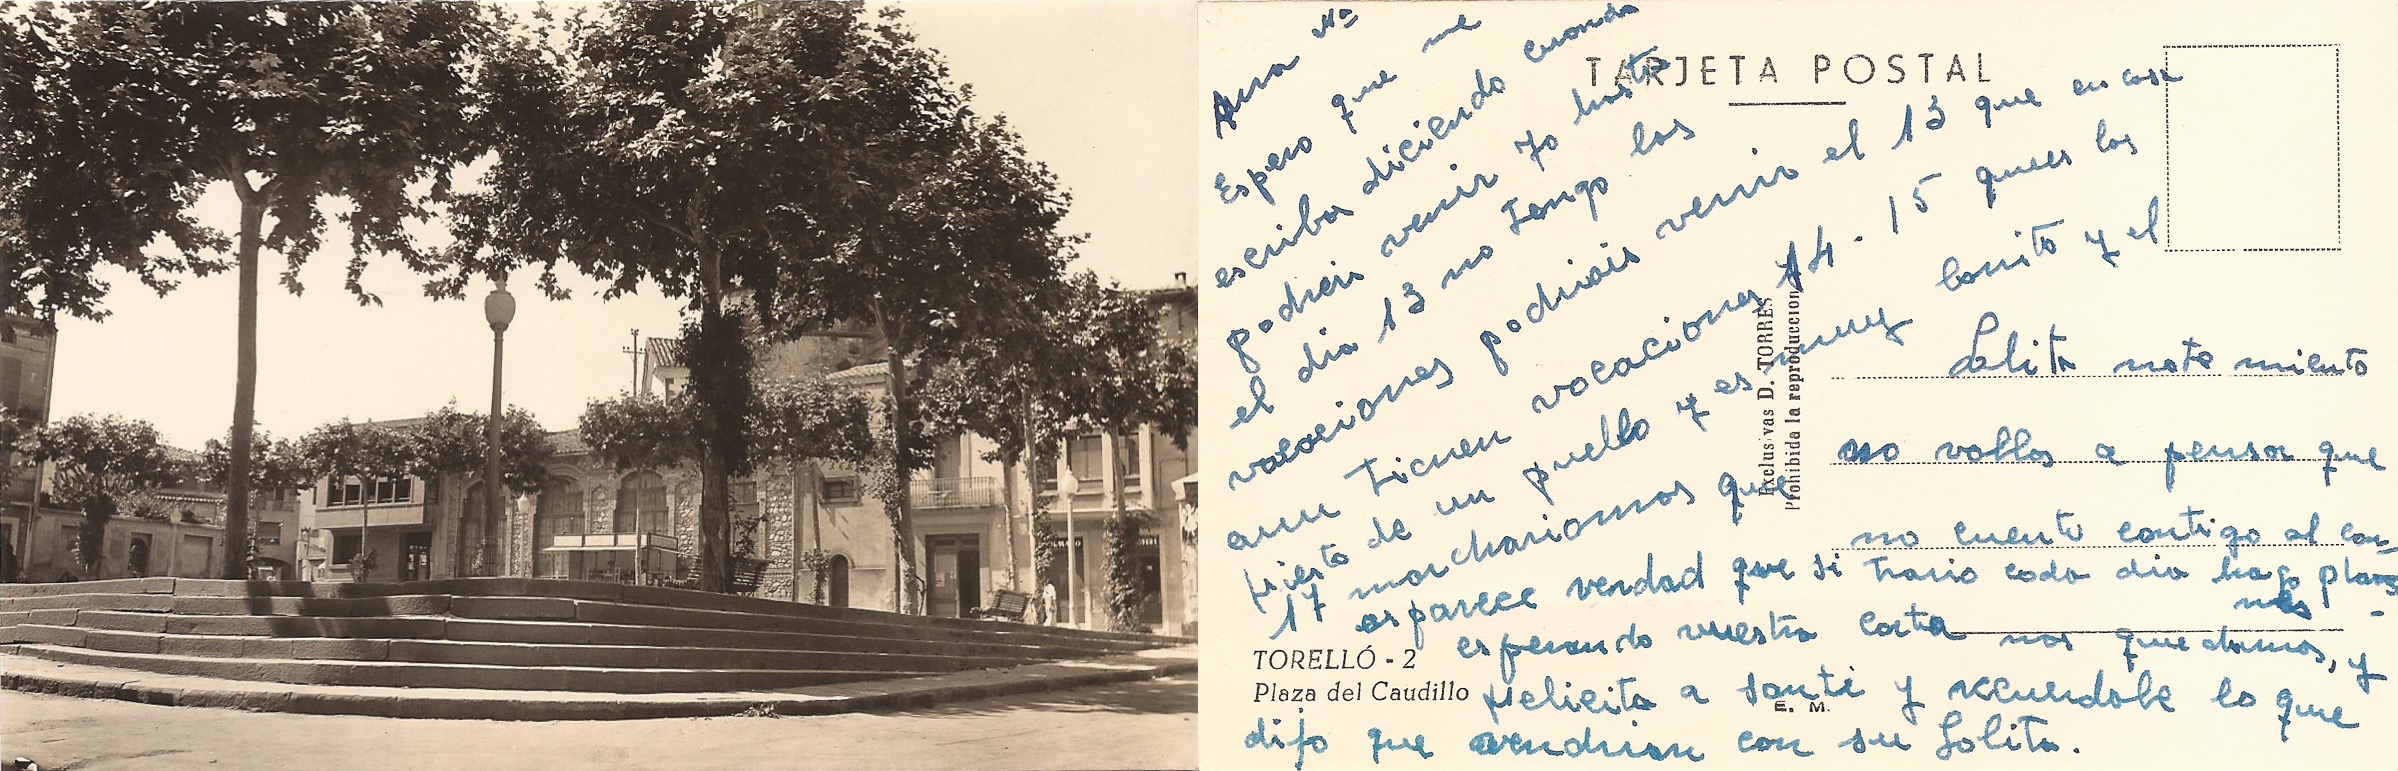 TARJETA POSTAL
Ana Mª
Espero que me
escriba diciendo cuando
podreis venir yo hasta
el dia 13 no Tengo las
vacaciones podriais venir el 13 que en casa
aun Tienen vacaciones 14. 15 pues las
fiesta de un puello y es muy bonito y el
17 marchariamos que
os parece verdad que si
esperando vuestra carta nos quedamos, y
felicita a Santi y recuerdale lo que
dijo que vendrian con su Lolita.
Lolita no te miento
no vallas a pensar que
no cuento contigo al con-
Trario cada dia hago planes
Exclusivas D. TORRES
Prohibida la reproduccion
TORELLÓ - 2
Plaza del Caudillo
E. M.